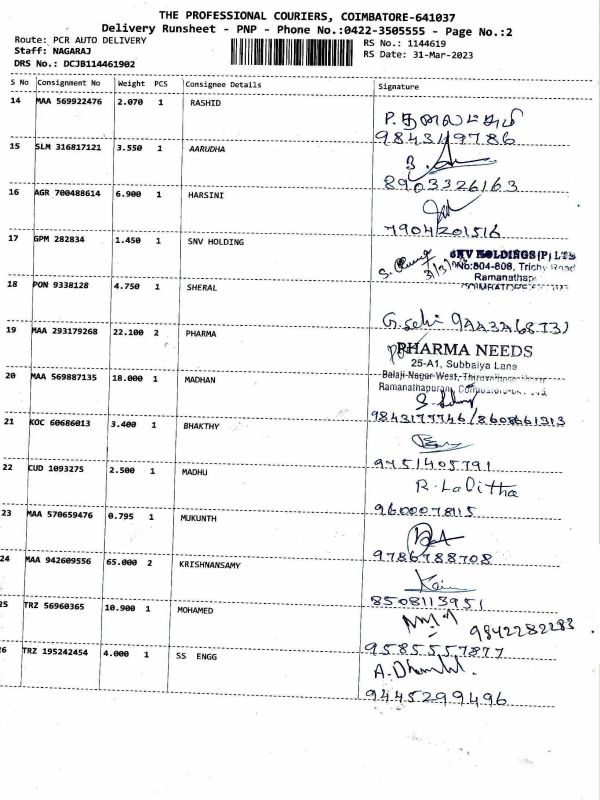 THE PROFESSIONAL COURIERS, COIMBATORE-641037
Delivery Runsheet - PNP - Phone No.:0422-3505555 - Page No.:2
Route: PCR AUTO DELIVERY
RS No.: 1144619
Staff: NAGARAJ
RS Date: 31-Mar-2023
DRS No.: DCJB114461902
S No Consignment No Weight PCS Consignee Details Signature
14 MAA 569922476 2.070 1 RASHID
9843119786
15 SLM 316817121 3.550 1 AARUDHA
8903326163
16 AGR 700488614 6.900 1 HARSINI
7904201516
17 GPM 282834 1.450 1 SNV HOLDING
SNV HOLDINGS (P) LTD
No:804-808, Trichy Road
Ramanathap
18 PON 9338128 4.750 1 SHERAL
19 MAA 293179268 22.100 2 PHARMA
PHARMA NEEDS
25-A1, Subbaiya Lane
Balaji Nagar West,
Ramanathapuram,
20 MAA 569887135 18.000 1 MADHAN
9843177746/8608661313
21 KOC 60686013 3.400 1 BHAKTHY
9751405791
22 CUD 1093275 2.500 1 MADHU
R. Lalitha
9600078115
23 MAA 570659476 0.795 1 MUKUNTH
9786788708
24 MAA 942609556 65.000 2 KRISHNANSAMY
8508113951
25 TRZ 56960365 10.900 1 MOHAMED
9842282283
9585557877
26 TRZ 195242454 4.000 1 SS ENGG
9445299496